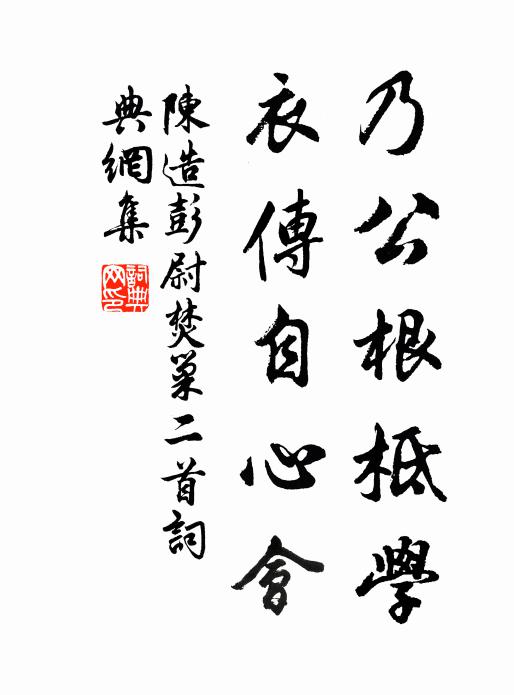 乃公根柢學
衣傳自心會
陳造彭尉焚巢二首詞
典網集
詞典網印